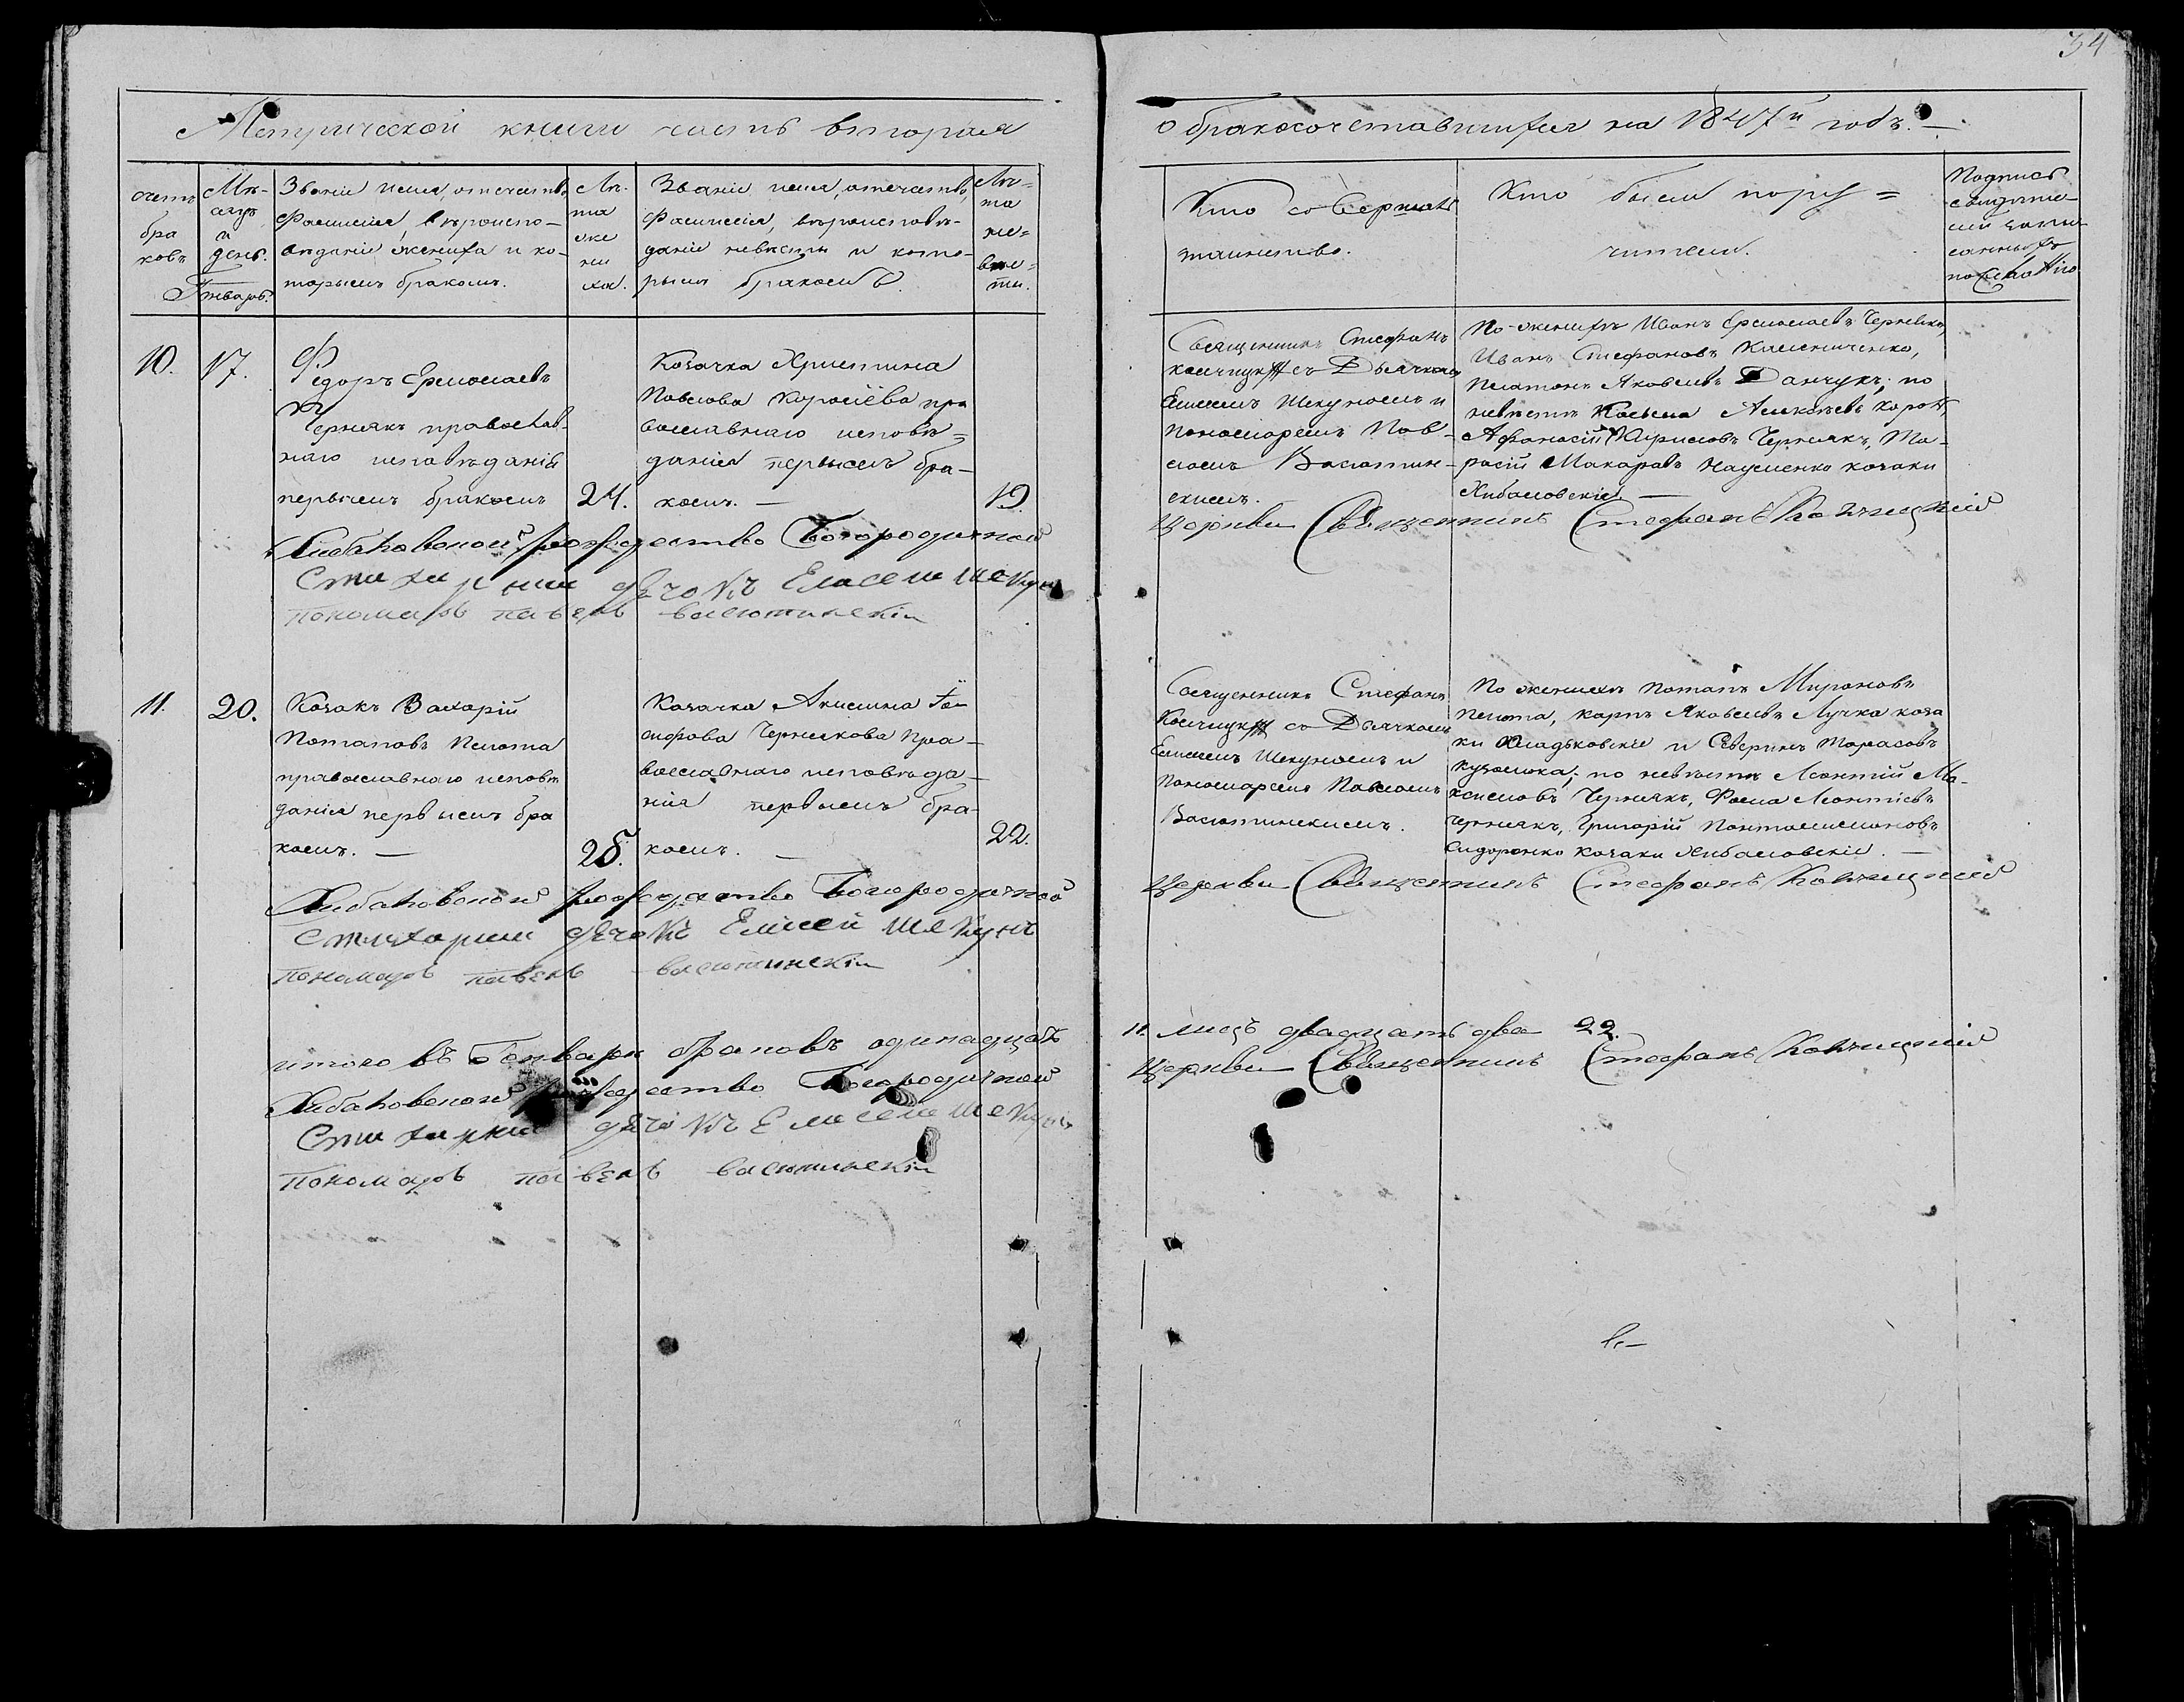 34
Метрической книги часть вторая
о бракосочетавшихся на 1847й годъ. —
счетъ
бра
ковъ
Мѣ-
сяцъ
и
день.
Январь.
Званіе имя, отечество,
фамилія, вѣроиспо-
вѣданіе жениха и ко-
торымъ бракомъ.
Лѣ-
та
же
ни
ха.
Званіе имя, отечество,
фамилія, вѣроисповѣ-
даніе невѣсты и кото-
рымъ бракомъ.
Лѣ=
та
не=
вѣс=
ты.
Кто совершалъ
таинство.
Кто были пору=
чители.
Подпись
свидѣте-
лей записи
по
10.
17.
Федоръ Ермолаевъ
Чернякъ православ-
наго исповѣданія
первымъ бракомъ
24.
Козачка Христина
Павлова пра
вославнаго исповѣ=
данія первымъ бра-
комъ. —
19.
Священникъ Стефанъ
съ Дьячкомъ
Елисеемъ Шекуномъ и
Пономаремъ Пав-
ломъ Васютин-
скимъ.
По женихѣ Иванъ Ермолаевъ
Иванъ Стефановъ
Платонъ Яковлевъ Данчукъ; по
невѣстѣ
Афанасій Чернякъ, Та-
расій Макаровъ Науменко козаки
Хибаловскіе —
Хибаловской Рождество Богородичной
Церкви Священникъ Стефанъ
Стихарний дячокъ Елисей Шекунъ
пономаръ павелъ васютинскій
11.
20.
Козакъ Захарій
Потаповъ Пелюта
православнаго исповѣ
данія первымъ бра
комъ. —
25.
Козачка Акилина Іо-
сифова Чернякова пра-
вославнаго исповѣда-
нія первымъ бра-
комъ. —
22.
Священникъ Стефанъ
съ Дьячкомъ
Елисеемъ Шекуномъ и
Пономаремъ Павломъ
Васютинскимъ.
По женихѣ Потапъ Мироновъ
Пелюта, Карпъ Яковлевъ Лучка коза
ки и Северинъ Тарасовъ
по невѣстѣ Леонтій Ма-
ксимовъ Чернякъ, Фома Леонтіевъ
Чернякъ, Григорій Пантелимоновъ
Сидоренко козаки Хибаловскіе. —
Хибаловской Рождество Богородичной
Церкви Священникъ Стефанъ
Стихарний дячокъ Елисей Шекунъ
пономаръ павелъ васютинскій
итого въ Генварѣ браковъ одинадцать
11. лицъ двадцать два 22.
Хибаловской Рождество Богородичной
Церкви Священникъ Стефанъ
Стихарний дячокъ Елисей Шекунъ
пономаръ павелъ васютинскій